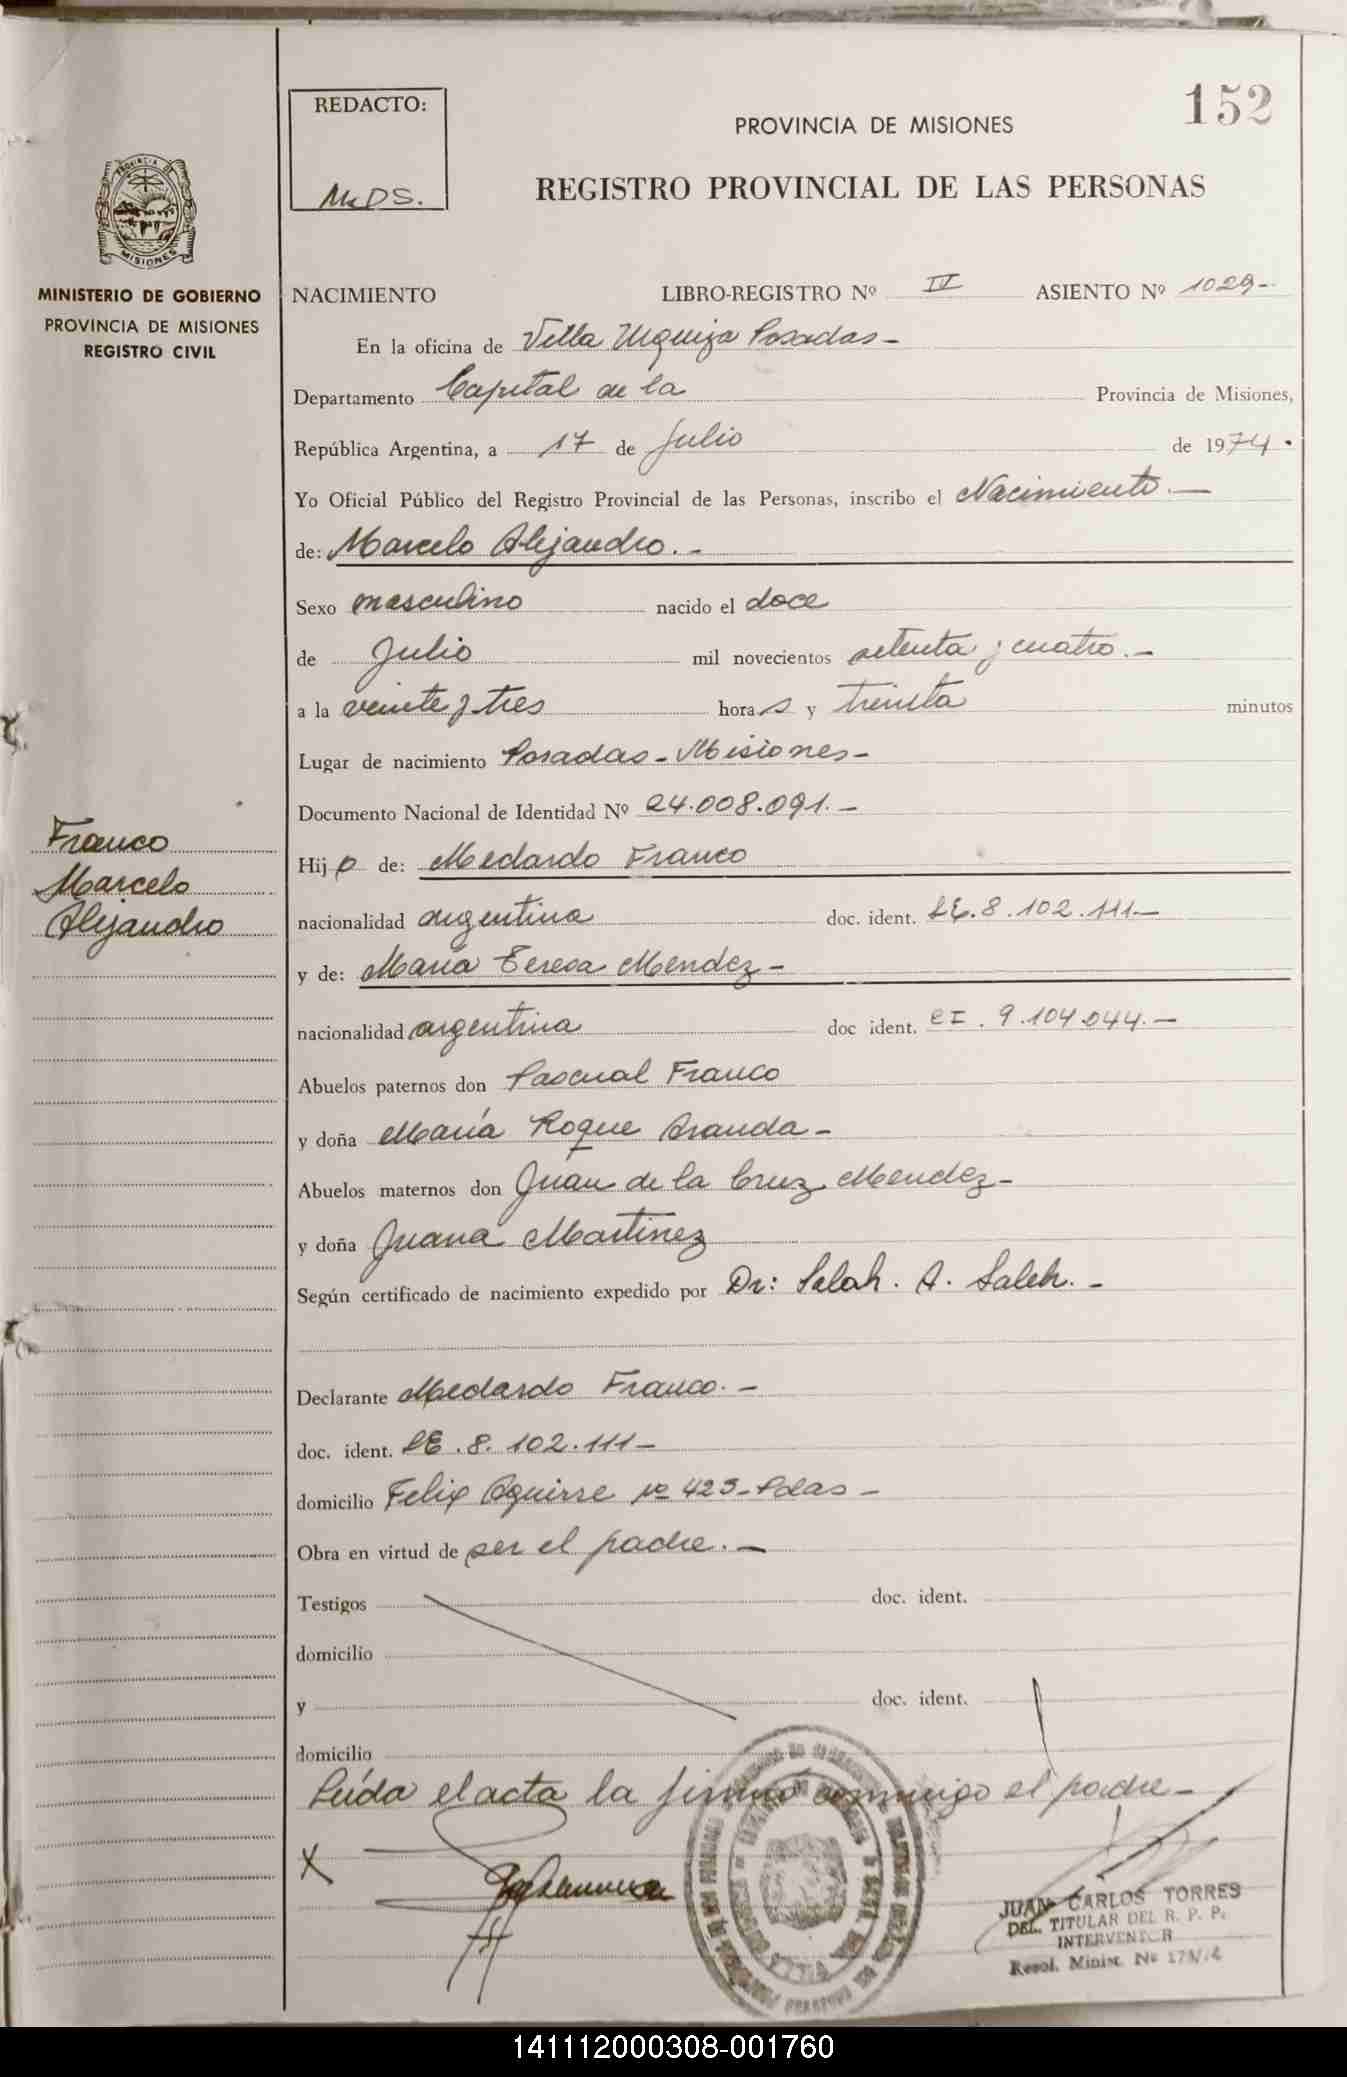 REDACTO:
152
PROVINCIA DE MISIONES
M.D.S.
REGISTRO PROVINCIAL DE LAS PERSONAS
PROVINCIA DE
MISIONES
MINISTERIO DE GOBIERNO
PROVINCIA DE MISIONES
REGISTRO CIVIL
NACIMIENTO LIBRO-REGISTRO Nº IV ASIENTO Nº 1029-
En la oficina de Villa Urquiza Posadas-
Departamento Capital de la Provincia de Misiones,
República Argentina, a 17 de Julio de 1974.
Yo Oficial Público del Registro Provincial de las Personas, inscribo el Nacimiento.-
de: Marcelo Alejandro.-
Sexo masculino nacido el doce
de Julio mil novecientos setenta y cuatro.-
a la veinte y tres horas y treinta minutos
Lugar de nacimiento Posadas-Misiones-
Documento Nacional de Identidad Nº 24.008.091.-
Franco
Marcelo
Alejandro
Hijo de: Medardo Franco
nacionalidad argentina doc. ident. LE.8.102.111-
y de: María Teresa Mendez-
nacionalidad argentina doc ident. CI. 9.104.044.-
Abuelos paternos don Pascual Franco
y doña María Roque Aranda-
Abuelos maternos don Juan de la Cruz Mendez-
y doña Juana Martinez
Según certificado de nacimiento expedido por Dr: Salah. A. Saleh.-
Declarante Medardo Franco.-
doc. ident. LE.8.102.111-
domicilio Felix Aguirre nº 423-Pdas-
Obra en virtud de ser el padre.-
Testigos doc. ident.
domicilio
y doc. ident.
domicilio
Leída el acta la firmó conmigo el padre-
X
JUAN CARLOS TORRES
DEL. TITULAR DEL R. P. P.
INTERVENTOR
Resol. Minist. Nº
141112000308-001760